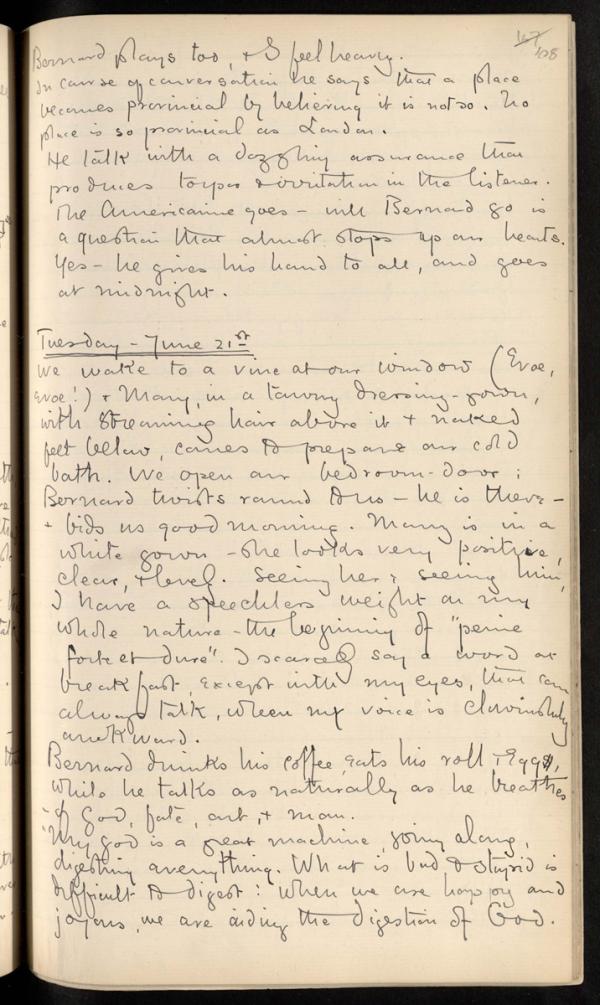 108
Bernard plays too, & I feel heavy.
In course of conversation he says that a place
becomes provincial by believing it is not so. No
place is so provincial as London.
He talk with a dazzling assurance that
produces torpor & irritation in the listener.
The Americaine goes – will Bernard go is
a question that almost stops up our hearts.
Yes – he gives his hand to all, and goes
at midnight.
Tuesday – June 21st
We wake to a vine at our window (Evoe,
Evoe!) & Mary, in a tawny dressing-gown,
with streaming hair above it & naked
feet below, comes to prepare our cold
bath. We open our bedroom-door;
Bernard twists round to us – he is there –
& bids us good morning. Mary is in a
white gown – she looks very positive,
clear, & level. Seeing her & seeing him,
I have a speechless weight on my
whole nature – the beginning of "peine
forte et dure". I scarcely say a word at
breakfast, except with my eyes, that can
always talk, when my voice is clownishly
awkward.
Bernard drinks his coffee, eats his roll & Eggs,
while he talks as naturally as he breathes
– of God, fate, art, & man.
"My god is a great machine, going along,
digesting everything. What is bad & stupid is
difficult to digest: when we are happy and
joyous, we are aiding the digestion of God.